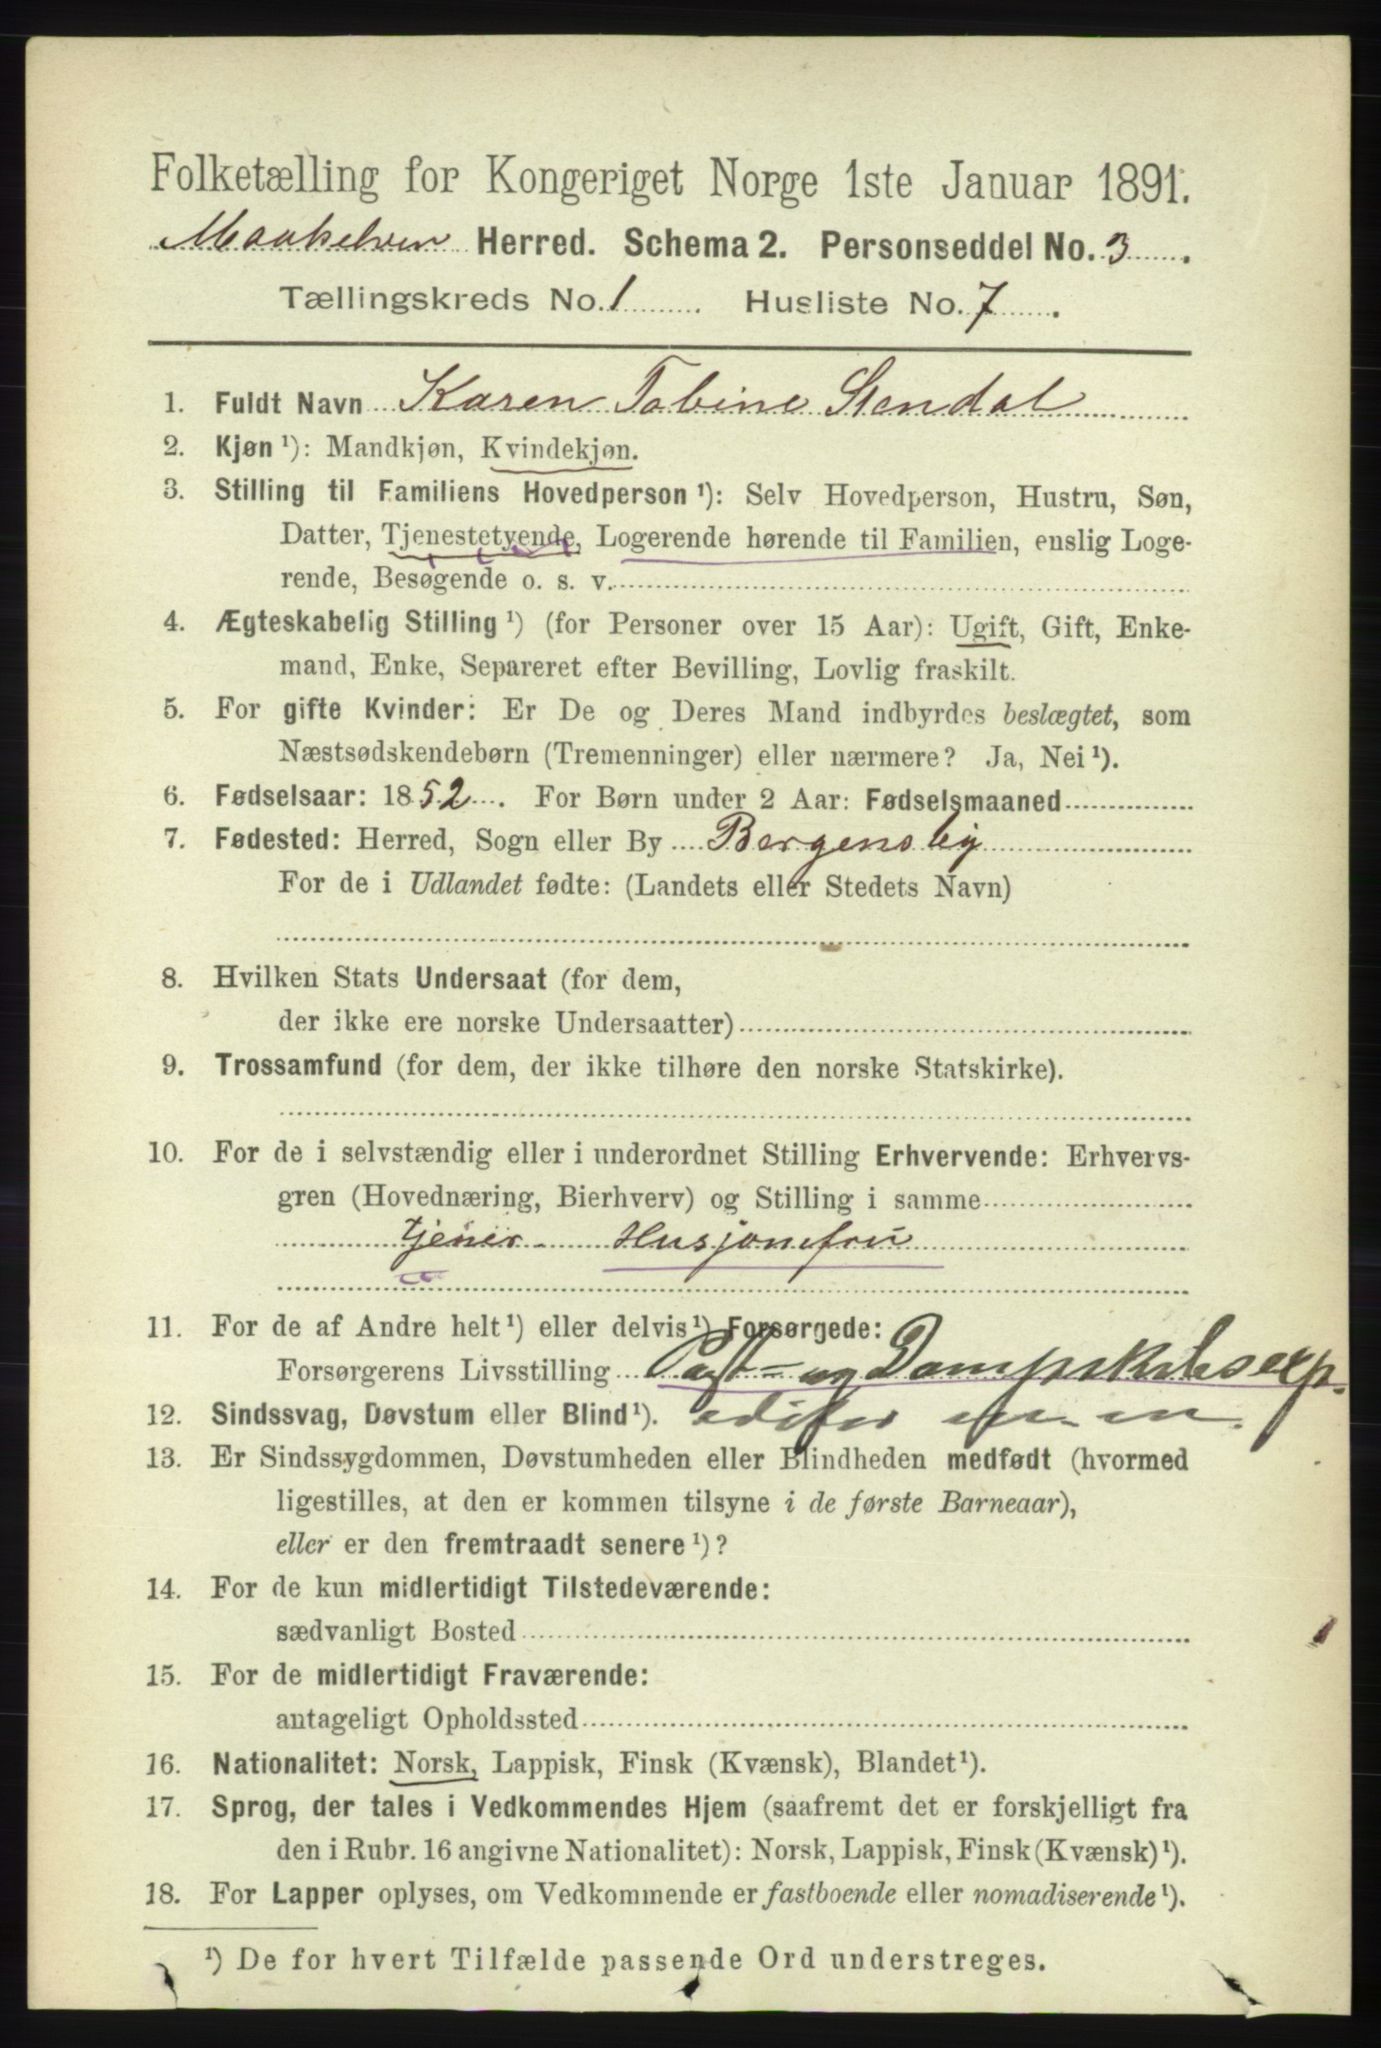 Folketælling for Kongeriget Norge 1ste Januar 1891.
Maakelven Herred. Schema 2. Personseddel No. 3.
Tællingskreds No. 1. Husliste No. 7.
1. Fuldt Navn Karen Tobine Stendal
2. Kjøn ¹): Mandkjøn, Kvindekjøn.
3. Stilling til Familiens Hovedperson ¹): Selv Hovedperson, Hustru, Søn,
Datter, Tjenestetyende, Logerende hørende til Familien, enslig Loge-
rende, Besøgende o. s. v.
4. Ægteskabelig Stilling ¹) (for Personer over 15 Aar): Ugift, Gift, Enke-
mand, Enke, Separeret efter Bevilling, Lovlig fraskilt.
5. For gifte Kvinder: Er De og Deres Mand indbyrdes beslægtet, som
Næstsødskendebørn (Tremenninger) eller nærmere? Ja, Nei ¹).
6. Fødselsaar: 1852. For Børn under 2 Aar: Fødselsmaaned
7. Fødested: Herred, Sogn eller By Bergens by
For de i Udlandet fødte: (Landets eller Stedets Navn)
8. Hvilken Stats Undersaat (for dem,
der ikke ere norske Undersaatter)
9. Trossamfund (for dem, der ikke tilhøre den norske Statskirke).
10. For de i selvstændig eller i underordnet Stilling Erhvervende: Erhvervs-
gren (Hovednæring, Bierhverv) og Stilling i samme
tjener Husjomfru
11. For de af Andre helt ¹) eller delvis ¹) Forsørgede:
Forsørgerens Livsstilling Post- og Dampskibsexp.
12. Sindssvag, Døvstum eller Blind ¹).
13. Er Sindssygdommen, Døvstumheden eller Blindheden medfødt (hvormed
ligestilles, at den er kommen tilsyne i de første Barneaar),
eller er den fremtraadt senere ¹)?
14. For de kun midlertidigt Tilstedeværende:
sædvanligt Bosted
15. For de midlertidigt Fraværende:
antageligt Opholdssted
16. Nationalitet: Norsk, Lappisk, Finsk (Kvænsk), Blandet ¹).
17. Sprog, der tales i Vedkommendes Hjem (saafremt det er forskjelligt fra
den i Rubr. 16 angivne Nationalitet): Norsk, Lappisk, Finsk (Kvænsk) ¹).
18. For Lapper oplyses, om Vedkommende er fastboende eller nomadiserende ¹).
¹) De for hvert Tilfælde passende Ord understreges.